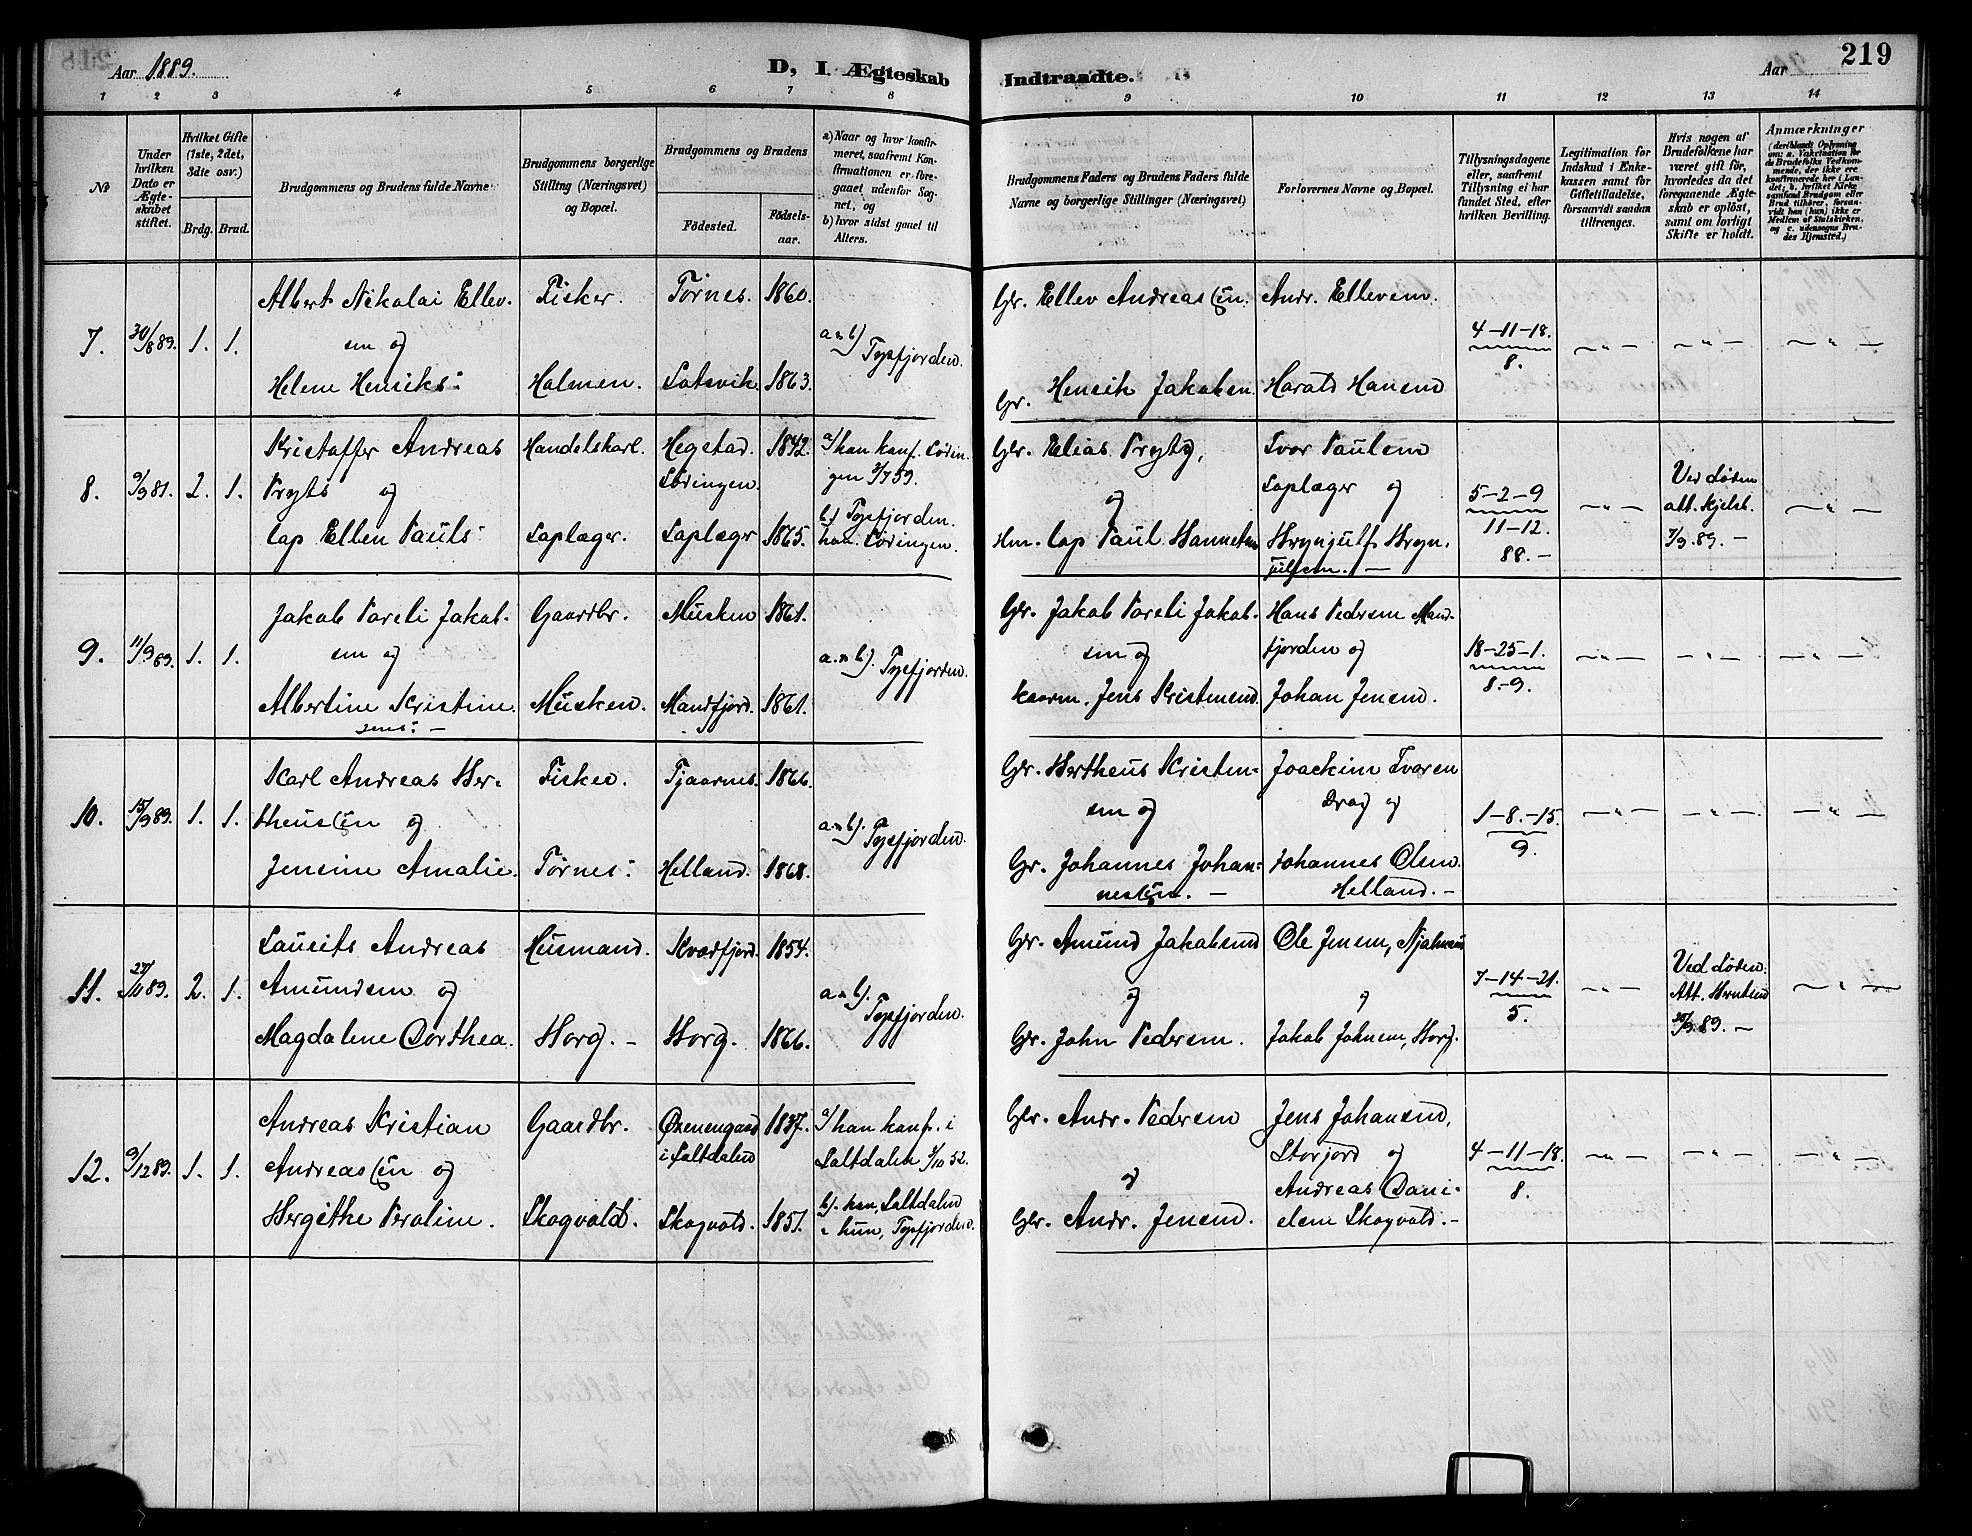 Aar 1889.
D, I. Ægteskab
Indtraadte.
Aar
219
1 2 3 4 5 6 7 8 9 10 11 12 13 14
No
Under hvilken Dato er Ægteskabet stiftet.
Hvilket Gifte (1ste, 2det, 3die osv.)
Brdg. Brud.
Brudgommens og Brudens fulde Navne
Brudgommens borgerlige Stilling (Næringsvei) og Bopæl.
Brudgommens og Brudens
Fødested.
Fødselsaar.
a) Naar og hvor konfirmeret, saafremt Konfirmationen er foregaaet udenfor Sognet, og
b) hvor sidst gaaet til Alters.
Brudgommens Faders og Brudens Faders fulde Navne og borgerlige Stillinger (Næringsvei)
Forlovernes Navne og Bopæl.
Tillysningsdagene eller, saafremt Tillysning ei har fundet Sted, efter hvilken Bevilling.
Legitimation for Indskud i Enkekassen samt for Giftetilladelse, forsaavidt saadan tiltrænges.
Hvis nogen af Brudefolkene har været gift før, hvorledes da det foregaaende Ægteskab er opløst, samt om lovligt Skifte er holdt.
Anmærkninger
7. 30/8 89. 1. 1.
Albert Nikolai Ellev- Fisker. Tørnes. 1860.
sen og
Helene Henriks: Holmen. 1863.
a. & b) Tysfjorden.
Gr. Ellev Andreassen. Andr. Ellevsen.
Gr. Henrik Jakobsen. Harald Hansen
4-11-18.
8.
8. 2. 1.
Kristoffer Andreas Handelskarl. Hegstad. 1842.
og Lødingen
lap Ellen Pauls: Laplæger. Laplæger 1865.
a/ han konf. Lødin-
gen
b) Tysfjorden.
han. Lødingen.
Gr. Elias
og
lap Paul
Ivar Paulsen
Laplæger og
5-2-9
11-12.
88.-
Ved døden
att. Kjelsb.
7/9.89.-
9. 11/9 89. 1. 1.
Jakob Pareli Jakob- Gaardbr. Musken 1861.
sen og
Albertine Kristine Musken. Mandfjord. 1861.
Jens:-
a. & b). Tysfjorden.
Gr. Jakob Pareli Jakob-
sen og
Jens Kristensen.
Hans Pedersen Mand-
fjorden og
Johan Jensen.
18-25-1.
8.-9.
10. 15/9 89. 1. 1.
Karl Andreas Ber- Fisker. Tjaarnes. 1866.
theussen og
Jensine Amalie. Tørnes: Helland. 1868.
a. & b). Tysfjorden.
Gr. Bertheus Kristen-
sen og
Gr. Johannes Johan-
nessen.-
Joackim Ivarsen
Drag og
Johannes Olsen.
Helland.-
1-8.-15.
9.
11. 27/10 89. 2. 1.
Laurits Andreas Husmand. Kvædfjord. 1854.
Amundsen og
Magdalene Dorthea. Horg.- Horg. 1866.
a. & b). Tysfjorden.
Gr. Amund Jakobsen
og
Gr. John Pedersen.
Ole Jensen,
og
Jakob Johnsen, Horg.
7-14-21.
5.
Ved døden.
Att.
89.-
12. 9/12 89. 1. 1.
Andreas Kristian Gaardbr. 1837.
Andreassen og i Saltdalen
Bergithe Peroline. Skogvold. Skogvold. 1851.
a/ han konf. i
Saltdalen 3/10 52.
b). han, Saltdalen
& hun, Tysfjorden.
Gr. Andr. Pedersen
og
Gr. Andr. Jensen.
Jens Johansen,
Storjord og
Andreas Dani-
elsen Skogvold.-
4-11-18.
8.